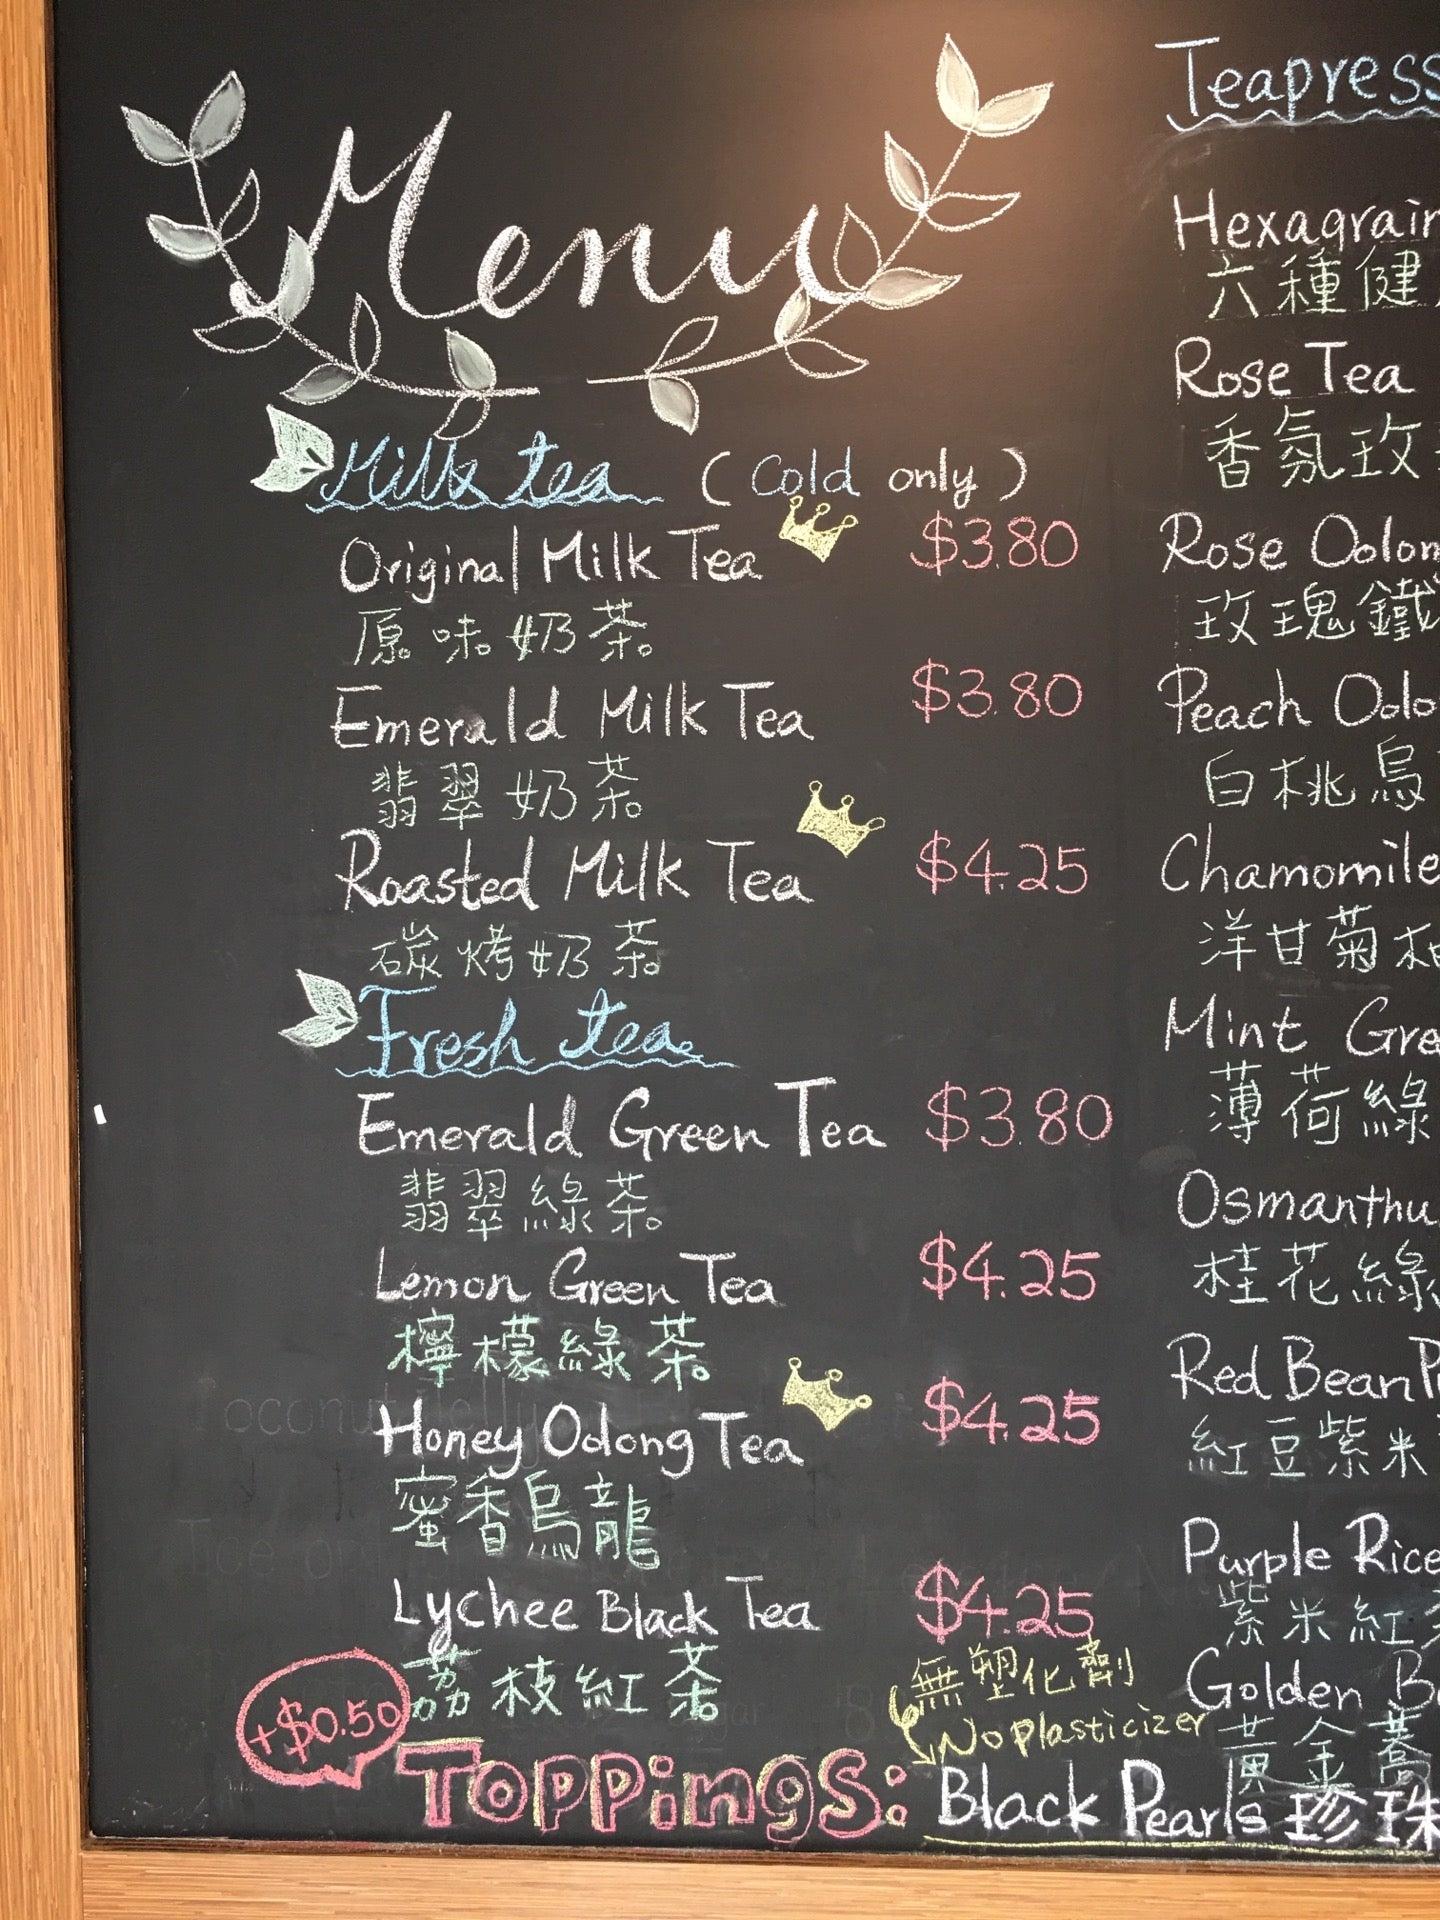 Menu
Milk tea (Cold only)
Original Milk Tea $3.80
原味奶茶
Emerald Milk Tea $3.80
翡翠奶茶
Roasted Milk Tea $4.25
碳烤奶茶
Fresh tea
Emerald Green Tea $3.80
翡翠綠茶
Lemon Green Tea $4.25
檸檬綠茶
Honey Oolong Tea $4.25
蜜香烏龍
Lychee Black Tea $4.25
荔枝紅茶
+$0.50
無塑化劑
No plasticizer
Toppings: Black Pearls 珍珠
Teapress
Hexagrain
六種健
Rose Tea
香氛玫
Rose Oolon
玫瑰鐵
Peach Oolo
白桃烏
Chamomile
洋甘菊柚
Mint Gre
薄荷綠
Osmanthu
桂花綠
Red Bean P
紅豆紫米
Purple Rice
紫米紅
Golden B
黃金蕎